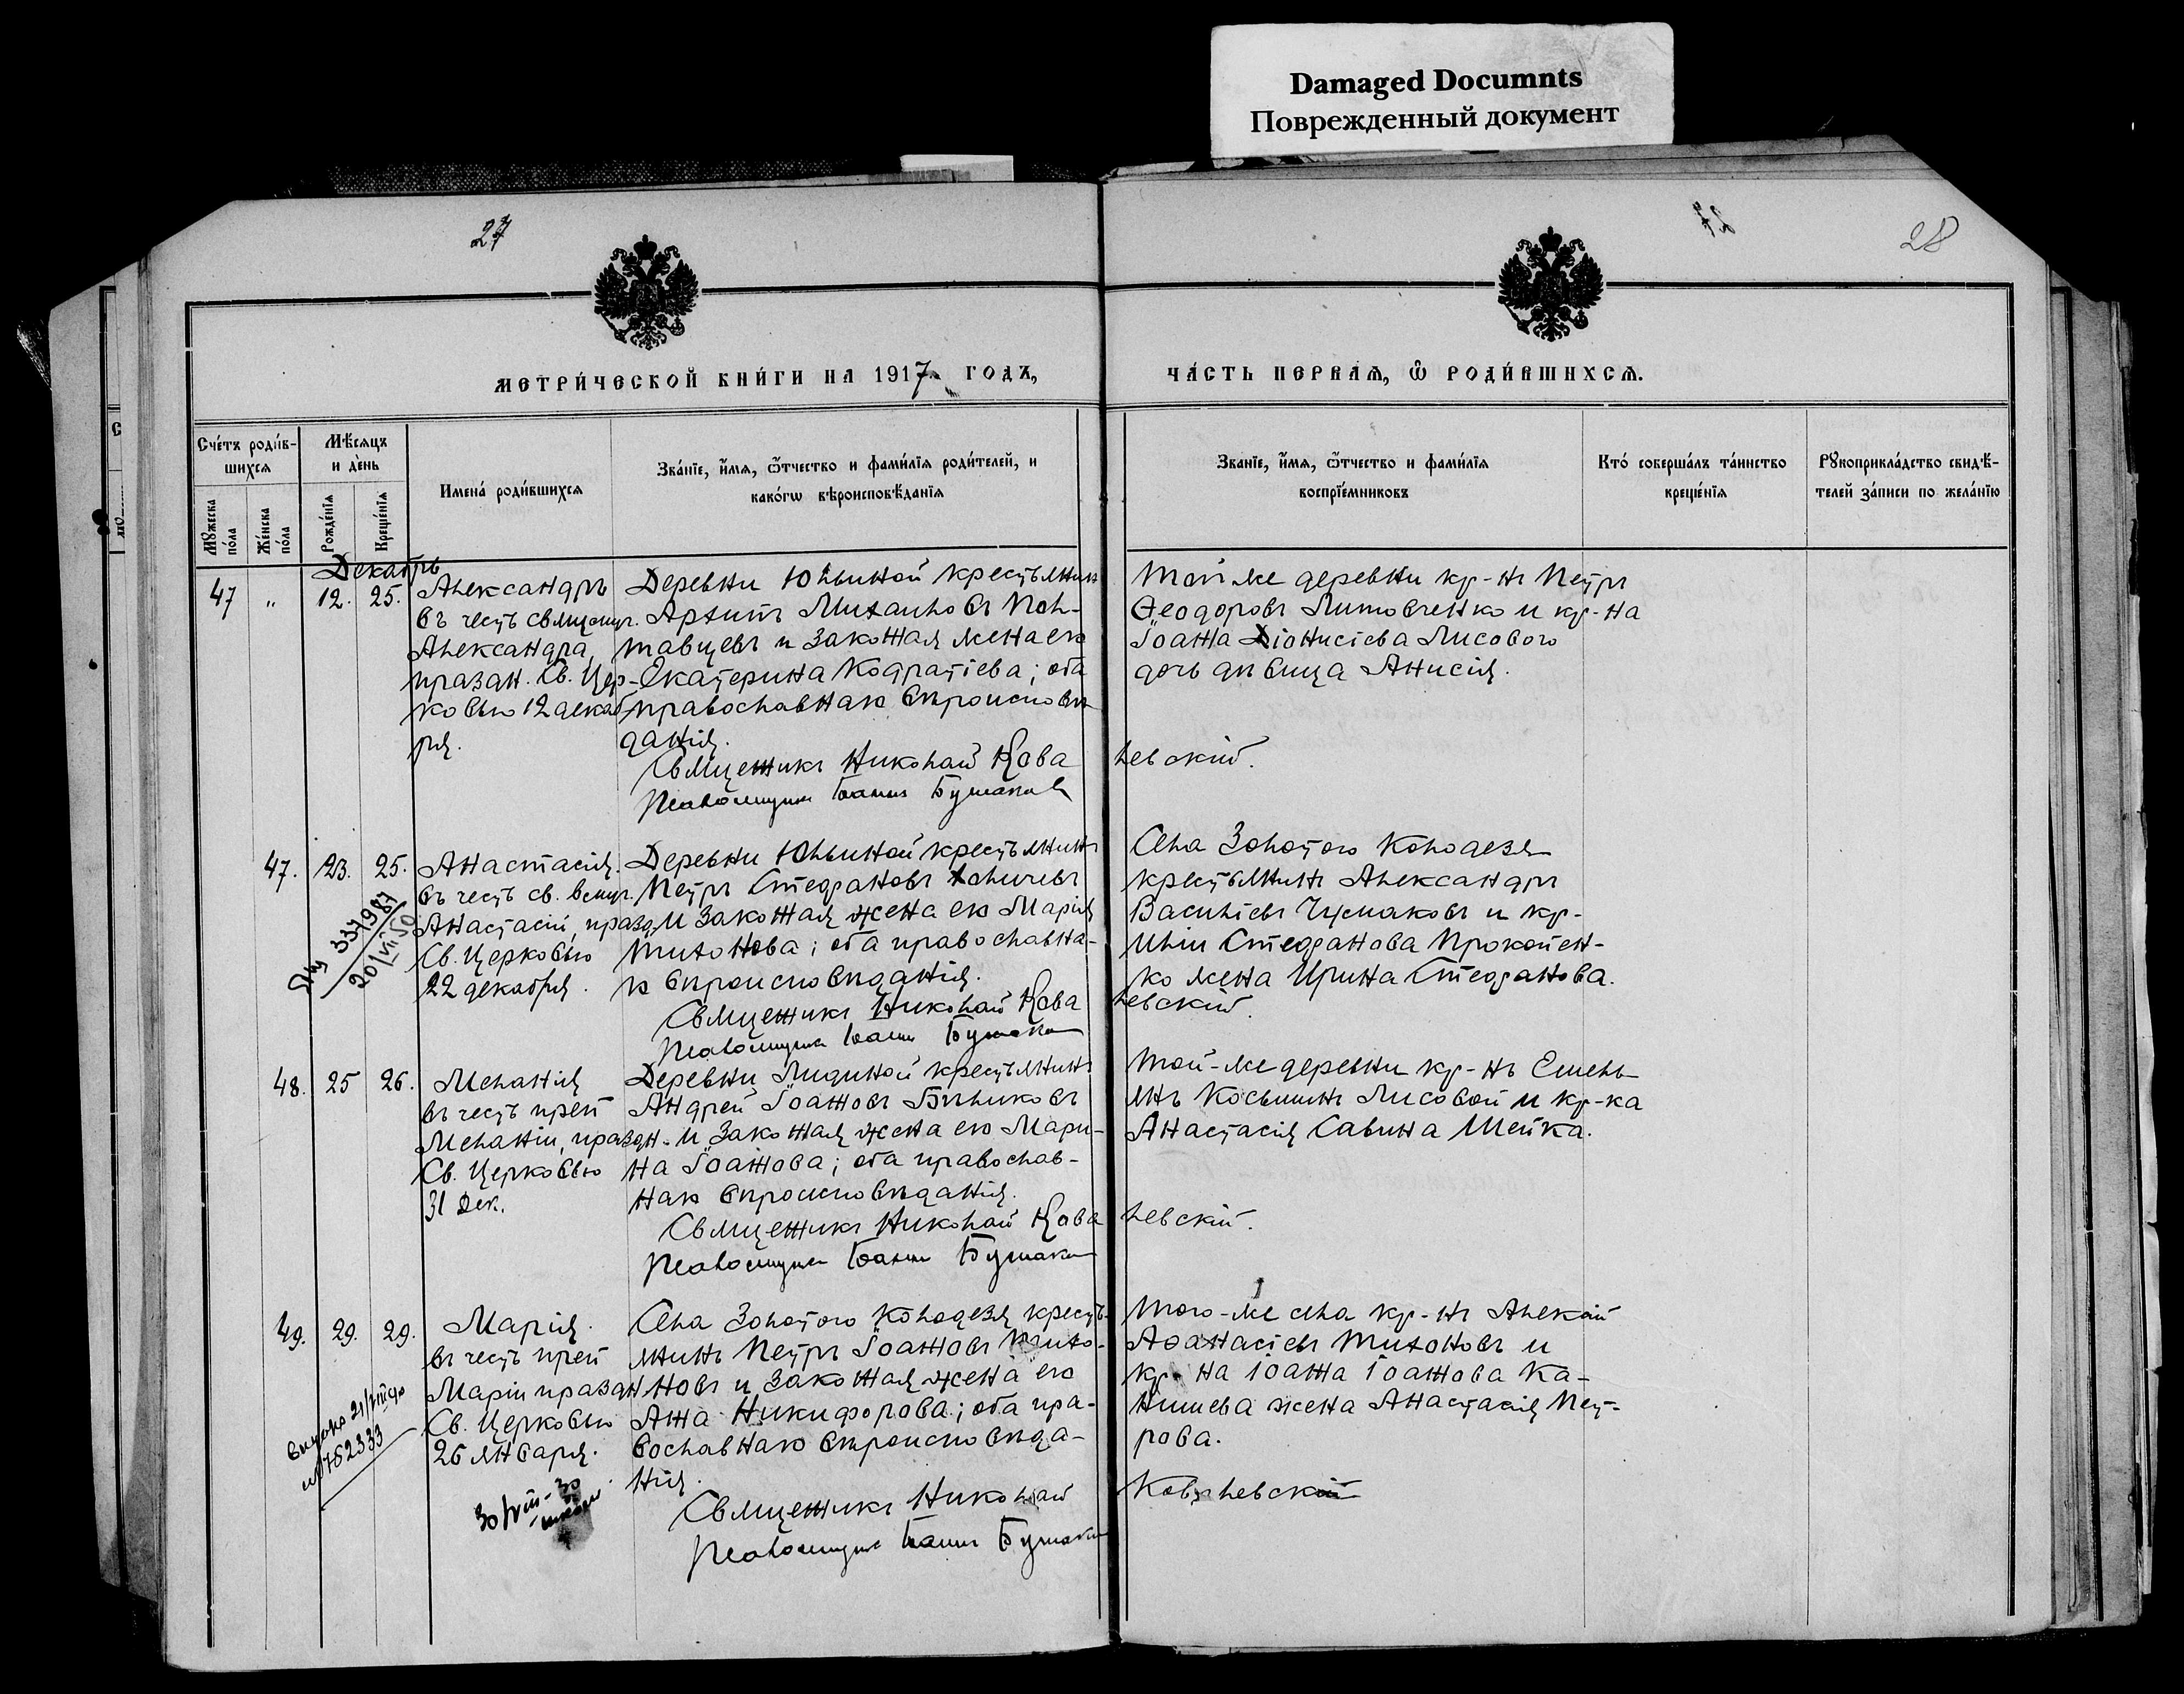 Damaged Documnts
Поврежденный документ
27
28
МЕТРИ́ЧЕСКОЙ КНИ́ГИ НА 1917 ГОДЪ,
ЧА́СТЬ ПЕ́РВАЯ, Ѡ҆ РОДИ́ВШИХСЯ.
Сче́тъ роди́в-
шихся
Мѣ́сяцъ
и де́нь
Имена̀ роди́вшихся
Зва́нїе, и҆́мя, ѻ҆́тчество и фами́лїя роди́телей, и
како́гѡ вѣроисповѣ́данїя
Зва́нїе, и҆́мя, ѻ҆́тчество и фами́лїя
воспрїе́мниковъ
Кто̀ соверша́лъ та́инство
креще́нїя
Рꙋкоприкла́дство свидѣ́-
телей за́писи по жела́нїю
Мꙋ́жеска
по́ла
Же́нска
по́ла
Рожде́нїя
Креще́нїя
Декабрь
47 „ 12. 25.
Александръ
въ честь свящмуч.
Александра,
праздн. Св. Цер-
ковью 12 декаб
ря.
Деревни Юльиной крестьянин
Архипъ Михаиловъ Пол-
тавцевъ и законная жена его
Екатерина Кодратіева; оба
православнаго вѣроисповѣ
данія.
Священникъ Николай Кова
левскій.
Псаломщикъ
Той же деревни кр-нъ Петръ
Ѳеодоровъ Литовченко и кр-на
Іоанна Діонисіева Лисового
дочь дѣвица Анисія.
47. 23. 25.
Анастасія.
въ честь св. вемуч.
Анастасіи, празд.
Св. Церковью
22 декабря.
337987
20/VII 50
Деревни Юльиной крестьянинъ
Петръ Стефановъ
и законная жена его Марія
Тихонова; оба православна-
го вѣроисповѣданія.
Священникъ Николай Кова
левскій.
Псаломщикъ
Села Золотого Колодезя
крестьянинъ Александръ
Васильевъ Чумаковъ и кр-
Иліи Стефанова Прокопен-
ко жена Ирина Стефанова.
48. 25 26.
Меланія
въ честь преп
Меланіи, праздн.
Св. Церковью
31 дек.
Деревни Лидиной крестьянинъ
Андрей Іоанновъ Бѣликовъ
и законная жена его Мари-
на Іоаннова; оба православ-
наго вѣроисповѣданія.
Священникъ Николай Кова
левскій.
Псаломщикъ
Той-же деревни кр-нъ Емель-
янъ Косьминъ Лисовой и кр-ка
Анастасія Савина Шейка.
49. 29. 29.
Марія.
въ честь преп
Маріи праздн
Св. Церковью
26 января.
Села Золотого Колодезя кресть-
янинъ Петръ Іоанновъ Тихо-
новъ и законная жена его
Анна Никифорова; оба пра-
вославнаго вѣроисповѣда-
нія.
Священникъ Николай
Ковалевскій
Псаломщикъ
Того-же села кр-нъ Алексій
Аѳанасіевъ Тихоновъ и
кр-на Іоанна Іоаннова Ка-
нишева жена Анастасія Пет-
рова.